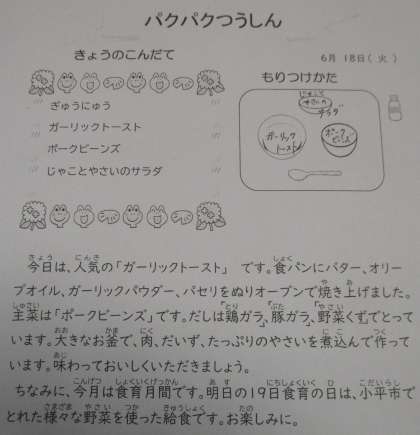 パクパクつうしん
きょうのこんだて
6月 18日(火)
もりつけかた
ぎゅうにゅう
ガーリックトースト
ポークビーンズ
じゃことやさいのサラダ
じゃこと
やさいの
サラダ
ガーリック
トースト
ポーク
ビーンズ
今日は、人気の「ガーリックトースト」 です。食パンにバター、オリー
ブオイル、ガーリックパウダー、パセリをぬりオーブンで焼き上げました。
主菜は「ポークビーンズ」です。だしは鶏ガラ、豚ガラ、野菜くずでとって
います。大きなお釜で、肉、だいず、たっぷりのやさいを煮込んで作って
います。味わっておいしくいただきましょう。
ちなみに、今月は食育月間です。明日の19日食育の日は、小平市で
とれた様々な野菜を使った給食です。お楽しみに。